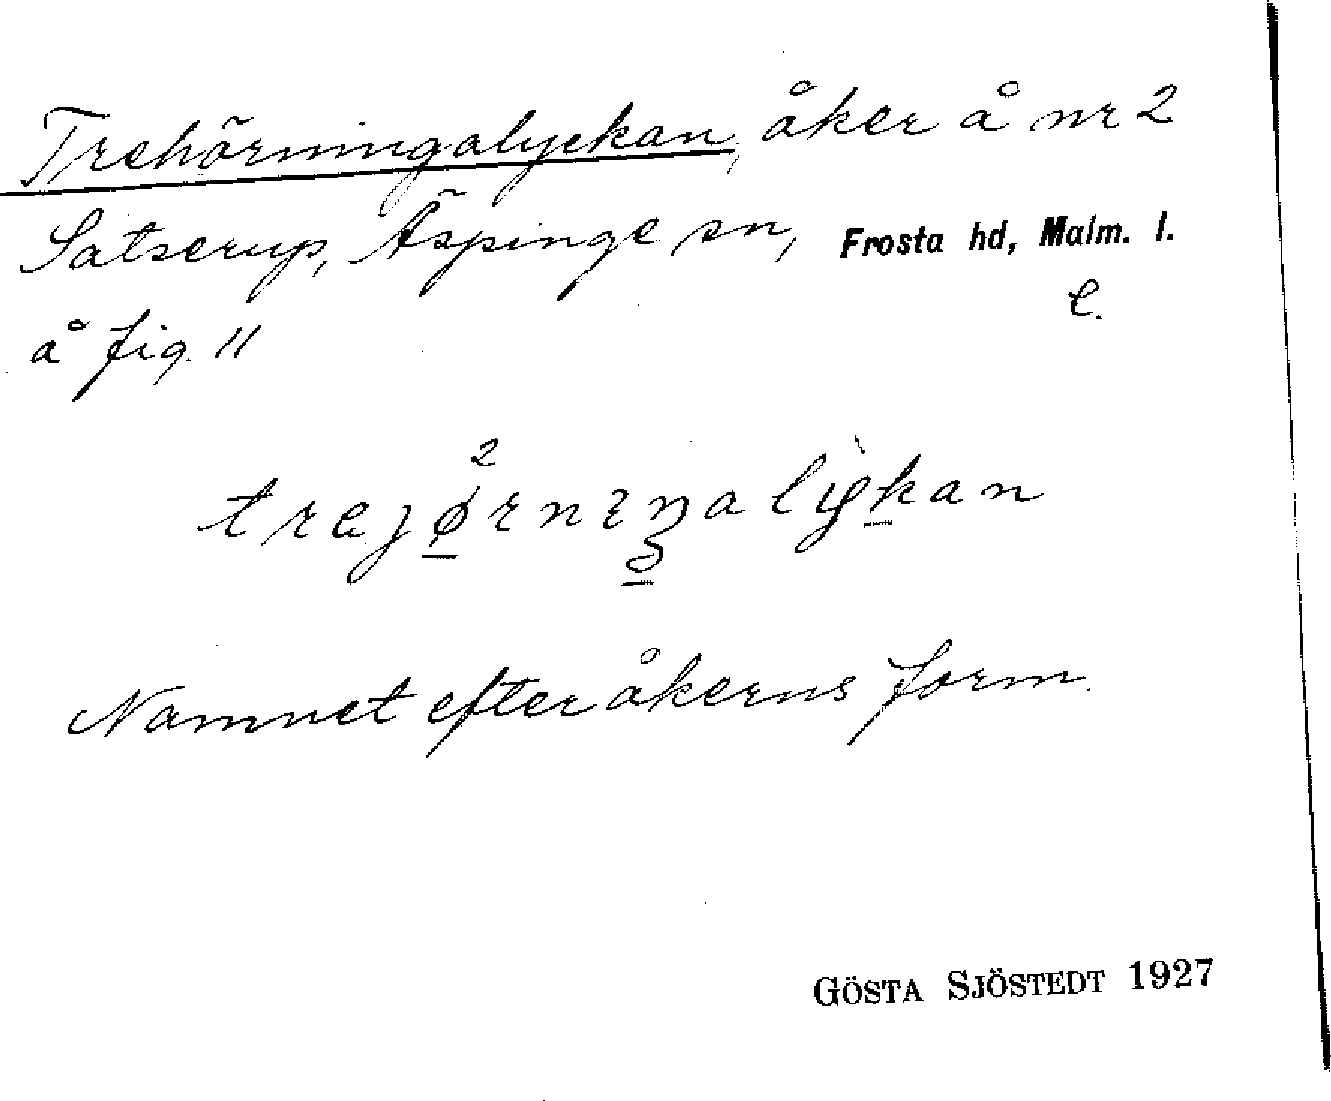 Trehörningalyckan, åker å nr 2
Satserup, Äspinge sn, Frosta hd, Malm. l.
å fig. 11 C.
Namnet efter åkerns form.
GÖSTA SJÖSTEDT 1927